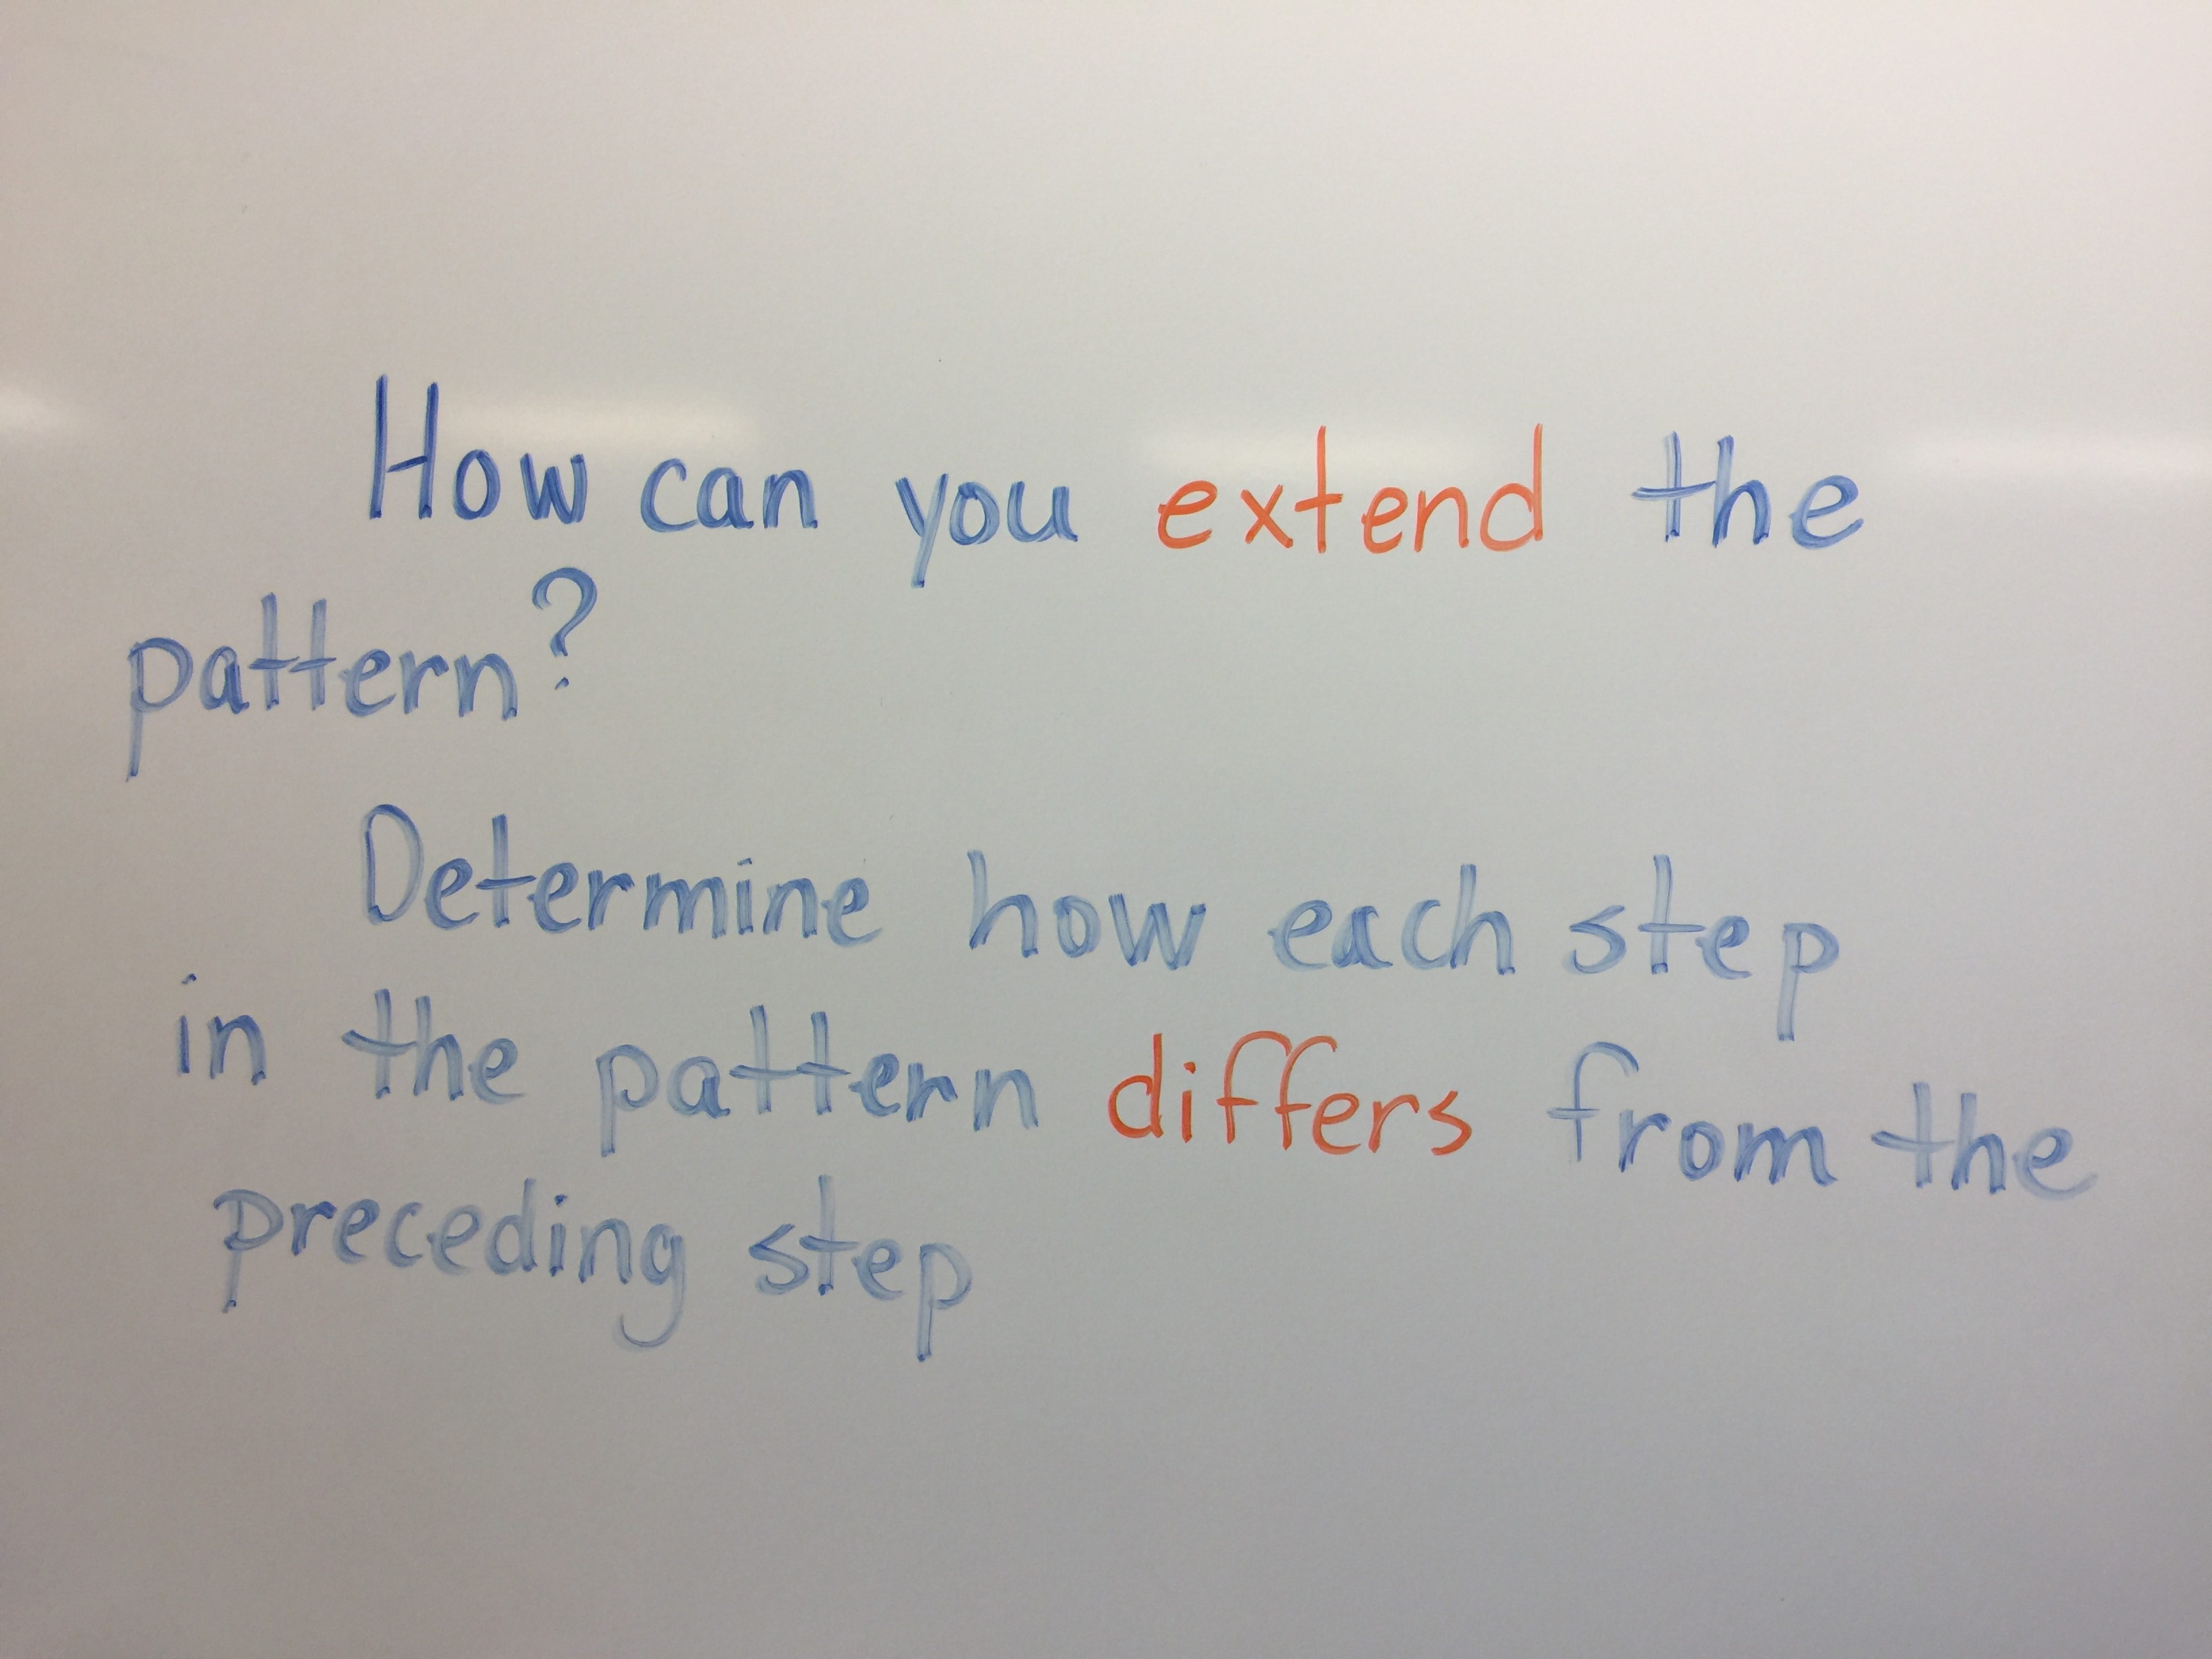 How can you extend the
pattern?
Determine how each step
in the pattern differs from the
preceding step